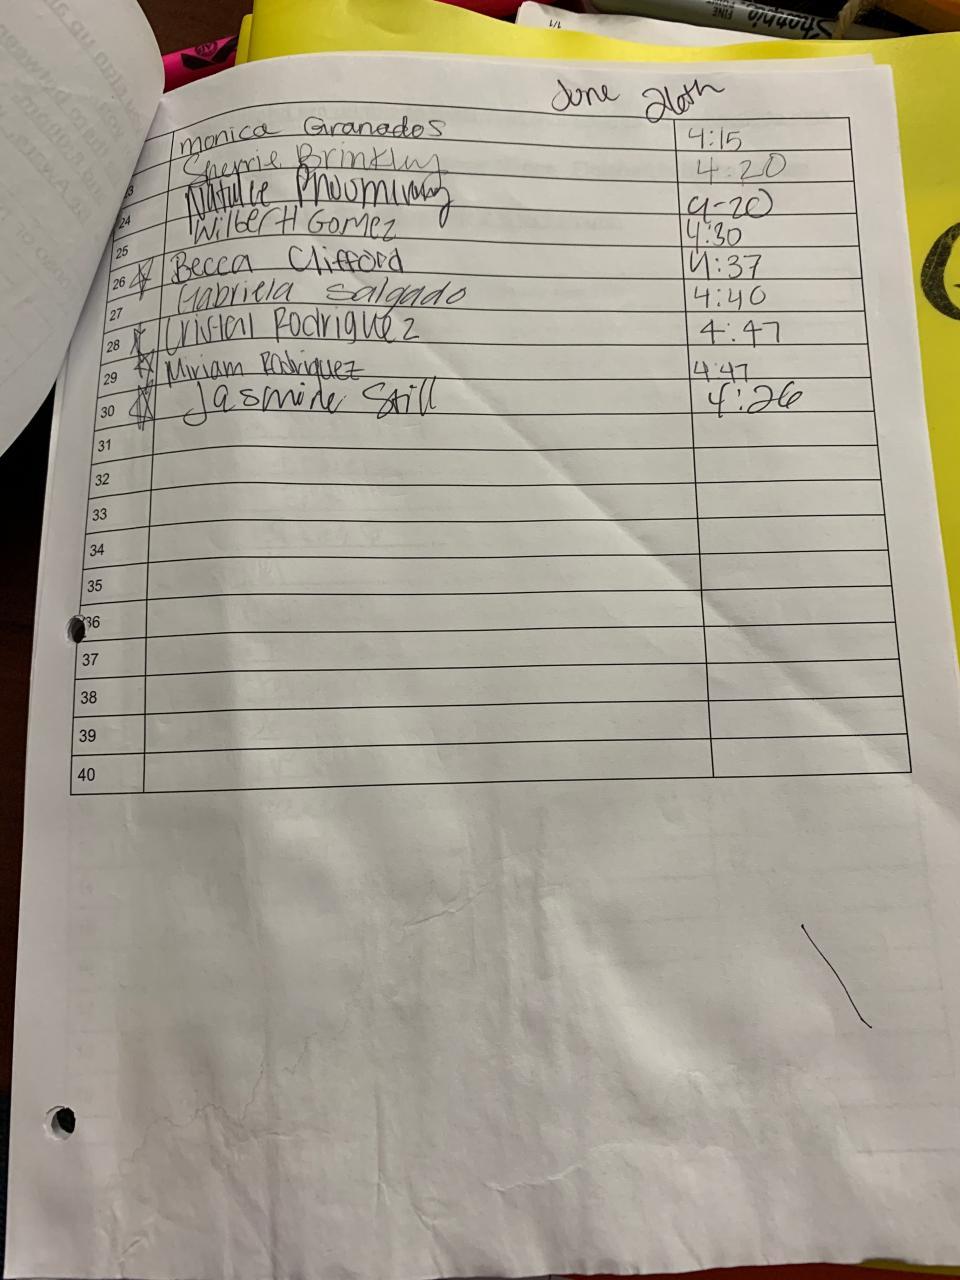 Sharpie
FINE
1/1
June 26th
Monica Granados 4:15
Sherrie Brinkley 4:20
23 Natalie 4-20
24 Wilbert Gomez 4:30
25 Becca Clifford 4:37
26 Gabriela Salgado 4:40
27 Cristal Rodriguez 4:47
28 Miriam Rodriguez 4:47
29 Jasmine Still 4:26
30
31
32
33
34
35
36
37
38
39
40